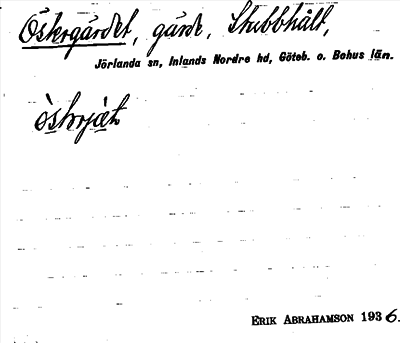 Östergärdet, gärde, Stubbhält,
Jörlanda sn, Inlands Nordre hd, Göteb. o. Bohus län.
ERIK ABRAHAMSON 1936.